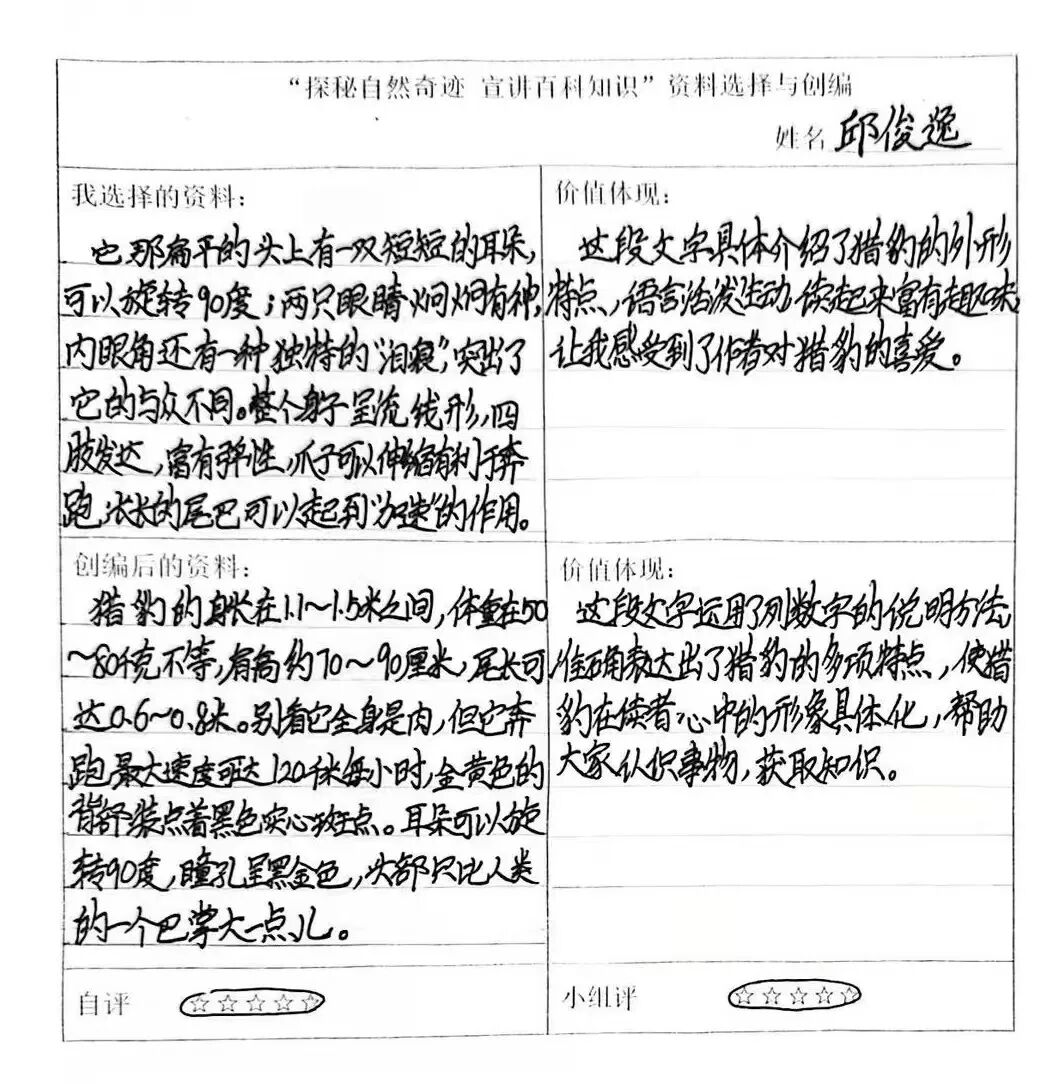 “探秘自然奇迹 宣讲百科知识”资料选择与创编
姓名 邱俊逸
我选择的资料：
它那扁平的头上有一双短短的耳朵，
可以旋转90度；两只眼睛炯炯有神，
内眼角还有一种独特的“泪痕”，突出了
它的与众不同。整个身子呈流线形，四
肢发达，富有弹性，爪子可以伸缩有利于奔
跑，长长的尾巴可以起到“加速”的作用。
价值体现：
这段文字具体介绍了猎豹的外形
特点，语言活泼生动，读起来富有趣味，
让我感受到了作者对猎豹的喜爱。
创编后的资料：
猎豹的身长在1.1～1.5米之间，体重在50
～80千克不等，肩高约70～90厘米，尾长可
达0.6～0.8米。别看它全身是肉，但它奔
跑最大速度可达120千米每小时，金黄色的
背部装点着黑色实心斑点。耳朵可以旋
转90度，瞳孔呈黑金色，头部只比人类
的一个巴掌大一点儿。
价值体现：
这段文字运用了列数字的说明方法，
准确表达出了猎豹的多项特点，使猎
豹在读者心中的形象具体化，帮助
大家认识事物，获取知识。
自评 ☆☆☆☆☆
小组评 ☆☆☆☆☆